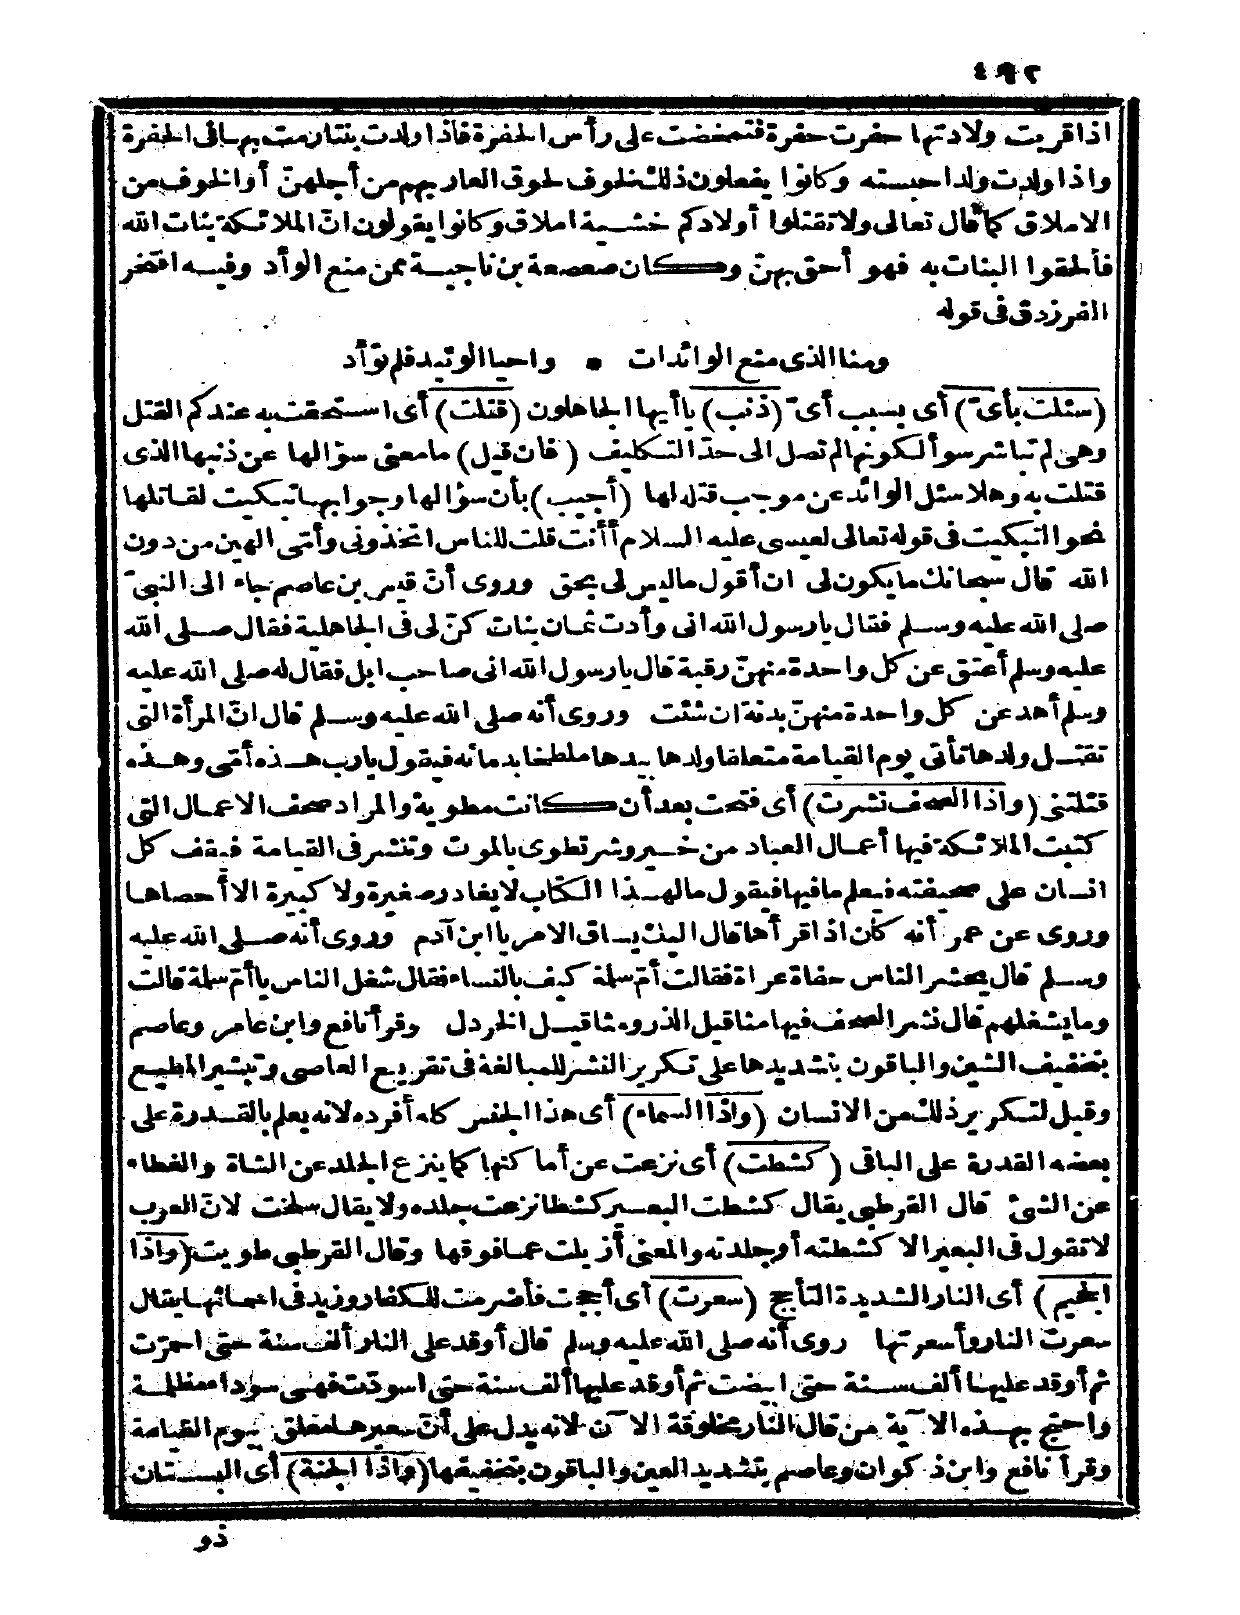 ٤٩٢
اذا قربت ولادتها حفرت حفرة فتمخضت على رأس الحفرة فاذا ولدت بنتارمت بها فى الحفرة
واذا ولدت ولدا حبسته وكانوا يفعلون ذلك لخوف لحوق العار بهم من أجلهنّ أو الخوف من
الاملاق كما قال تعالى ولا تقتلوا أولادكم خشية املاق وكانوا يقولون انّ الملائكة بنات الله
فألحقوا البنات به فهو أحق بهنّ وكان صعصعة بن ناجية ممن منع الوأد وفيه افتخر
الفرزدق فى قوله
ومنا الذى منع الوائدات * واحيا الوئيد فلم توأد
(سئلت بأىّ) أى بسبب أىّ (ذنب) ياأيها الجاهلون (قتلت) أى استحقت به عندكم القتل
وهى لم تباشر سوأ لكونها لم تصل الى حدّ التكليف (فان قيل) ما معنى سؤالها عن ذنبها الذى
قتلت به وهلا سئل الوائد عن موجب قتله لها (أجيب) بأن سؤالها وجوابها تبكيت لقاتلها
نحو التبكيت فى قوله تعالى لعيسى عليه السلام أأنت قلت للناس اتخذونى وأمّى الهين من دون
الله قال سبحانك ما يكون لى ان أقول ما ليس لى بحق وروى أنّ قيس بن عاصم جاء الى النبىّ
صلى الله عليه وسلم فقال يارسول الله انى وأدت ثمان بنات كنّ لى فى الجاهلية فقال صلى الله
عليه وسلم أعتق عن كل واحدة منهنّ رقبة قال يارسول الله انى صاحب ابل فقال له صلى الله عليه
وسلم أهد عن كل واحدة منهنّ بدنة ان شئت وروى أنه صلى الله عليه وسلم قال انّ المرأة التى
تقتل ولدها تأتى يوم القيامة متعلقا ولدها بيدها ملطخا بدمائه فيقول يارب هذه أمّى وهذه
قتلتنى (واذا الصحف نشرت) أى فتحت بعد أن كانت مطوية والمراد صحف الاعمال التى
كتبت الملائكة فيها أعمال العباد من خير وشر تطوى بالموت وتنشر فى القيامة فيقف كل
انسان على صحيفته فيعلم ما فيها فيقول ما لهذا الكتاب لا يغادر صغيرة ولا كبيرة الا أحصاها
وروى عن عمر أنه كان اذا قرأها قال اليك يساق الامر ياابن آدم وروى أنه صلى الله عليه
وسلم قال يحشر الناس حفاة عراة فقالت أمّ سلمة كيف بالنساء فقال شغل الناس ياأمّ سلمة قالت
وما يشغلهم قال نشر الصحف فيها مثاقيل الذر ومثاقيل الخردل وقرأ نافع وابن عامر وعاصم
بتخفيف الشين والباقون بتشديدها على تكرير النشر للمبالغة فى تقريع العاصى وتبشير المطيع
وقيل لتكرير ذلك من الانسان (واذا السماء) أى هذا الجنس كله أفرده لانه يعلم بالقدرة على
بعضه القدرة على الباقى (كشطت) أى نزعت عن أماكنها كما ينزع الجلد عن الشاة والغطاء
عن الشئ قال القرطبى يقال كشطت البعير كشطا نزعت جلده ولا يقال سلخت لانّ العرب
لا تقول فى البعير الا كشطته أو جلدته والمعنى أزيلت عما فوقها وقال القرطبى طويت (واذا
الجحيم) أى النار الشديدة التأجج (سعرت) أى أججت فأضرمت للكفار وزيد فى احمائها يقال
سعرت النار وأسعرتها روى أنه صلى الله عليه وسلم قال أوقد على النار ألف سنة حتى احمرّت
ثم أوقد عليها ألف سنة حتى ابيضت ثم أوقد عليها ألف سنة حتى اسودّت فهى سوداء مظلمة
واحتج بهذه الآية من قال النار مخلوقة الآن لانه يدل على أنّ سعيرها معلق بيوم القيامة
وقرأ نافع وابن ذكوان وعاصم بتشديد العين والباقون بتخفيفها (واذا الجنة) أى البستان
ذو